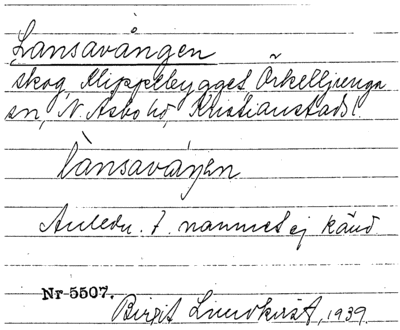 Lansavången
skog, Klippebygget, Örkelljunga
sn, N. Åsbo hd, Kristianstads l.
lànsavåŋen
Anledn. t. namnet ej känd
Nr 5507.
Birgit Lundkvist, 1939.